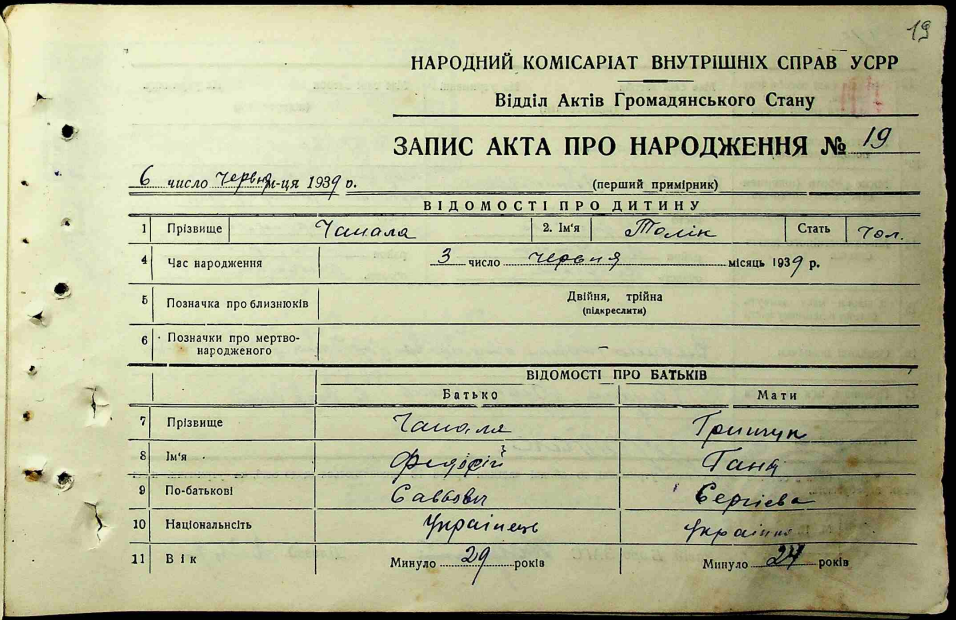 19
НАРОДНИЙ КОМІСАРІАТ ВНУТРІШНІХ СПРАВ УСРР
Відділ Актів Громадянського Стану
ЗАПИС АКТА ПРО НАРОДЖЕННЯ № 19
6 число червня м-ця 1939 р. (перший примірник)
ВІДОМОСТІ ПРО ДИТИНУ
1 Прізвище Чапала 2. Ім'я Толік Стать чол.
4 Час народження 3 число червня місяць 1939 р.
5 Позначка про близнюків Двійня, трійна
(підкреслити)
6 Позначки про мертво-
народженого –
ВІДОМОСТІ ПРО БАТЬКІВ
Батько Мати
7 Прізвище Чапала Грищук
8 Ім'я Федосій Ганя
9 По-батькові Саввович Сергієва
10 Національність Українець
11 Вік Минуло 29 років Минуло 24 років